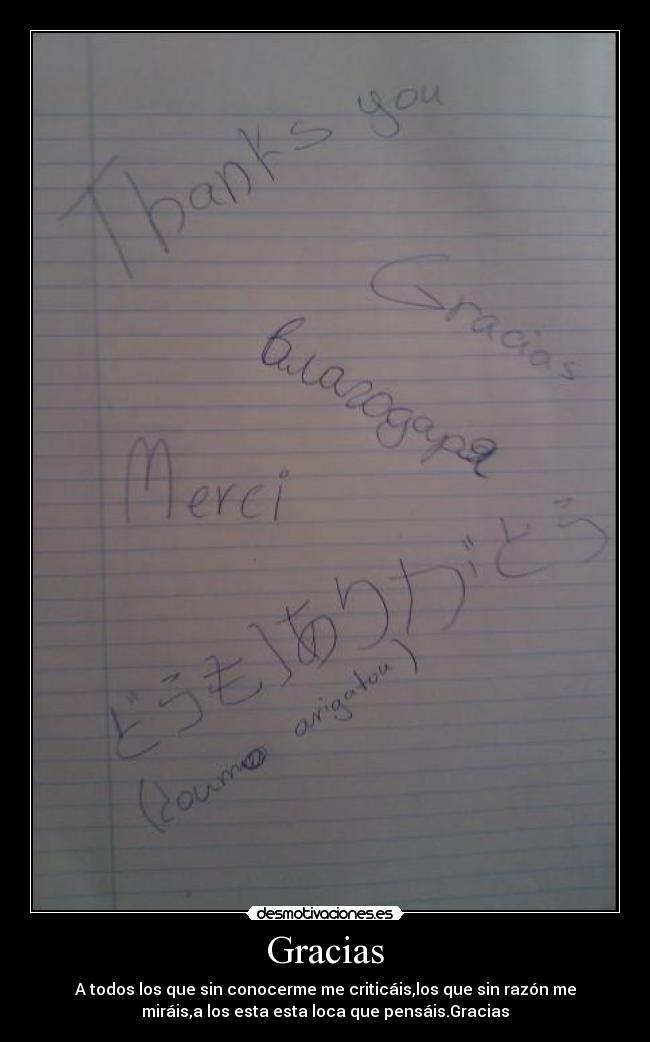 Thanks you
Gracias
благодаря
Merci
どうもありがとう
(doumo arigatou)
desmotivaciones.es
Gracias
A todos los que sin conocerme me criticáis,los que sin razón me
miráis,a los esta esta loca que pensáis.Gracias